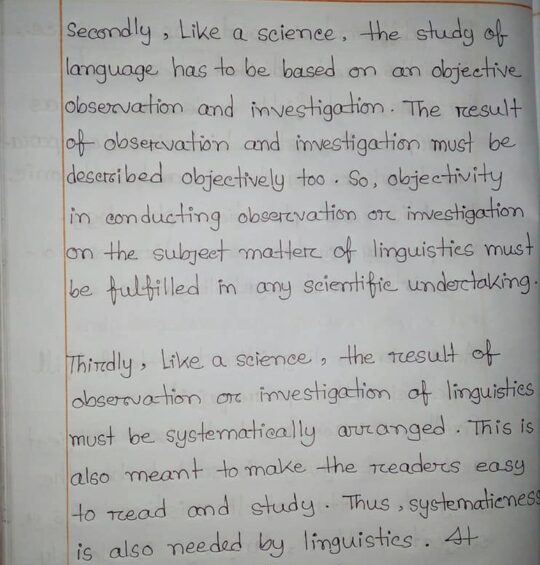 Secondly, Like a science, the study of
language has to be based on an objective
observation and investigation. The result
of observation and investigation must be
described objectively too. So, objectivity
in conducting observation or investigation
on the subject matter of linguistics must
be fulfilled in any scientific undertaking.
Thirdly, Like a science, the result of
observation or investigation of linguistics
must be systematically arranged. This is
also meant to make the readers easy
to read and study. Thus, systematicness
is also needed by linguistics. At